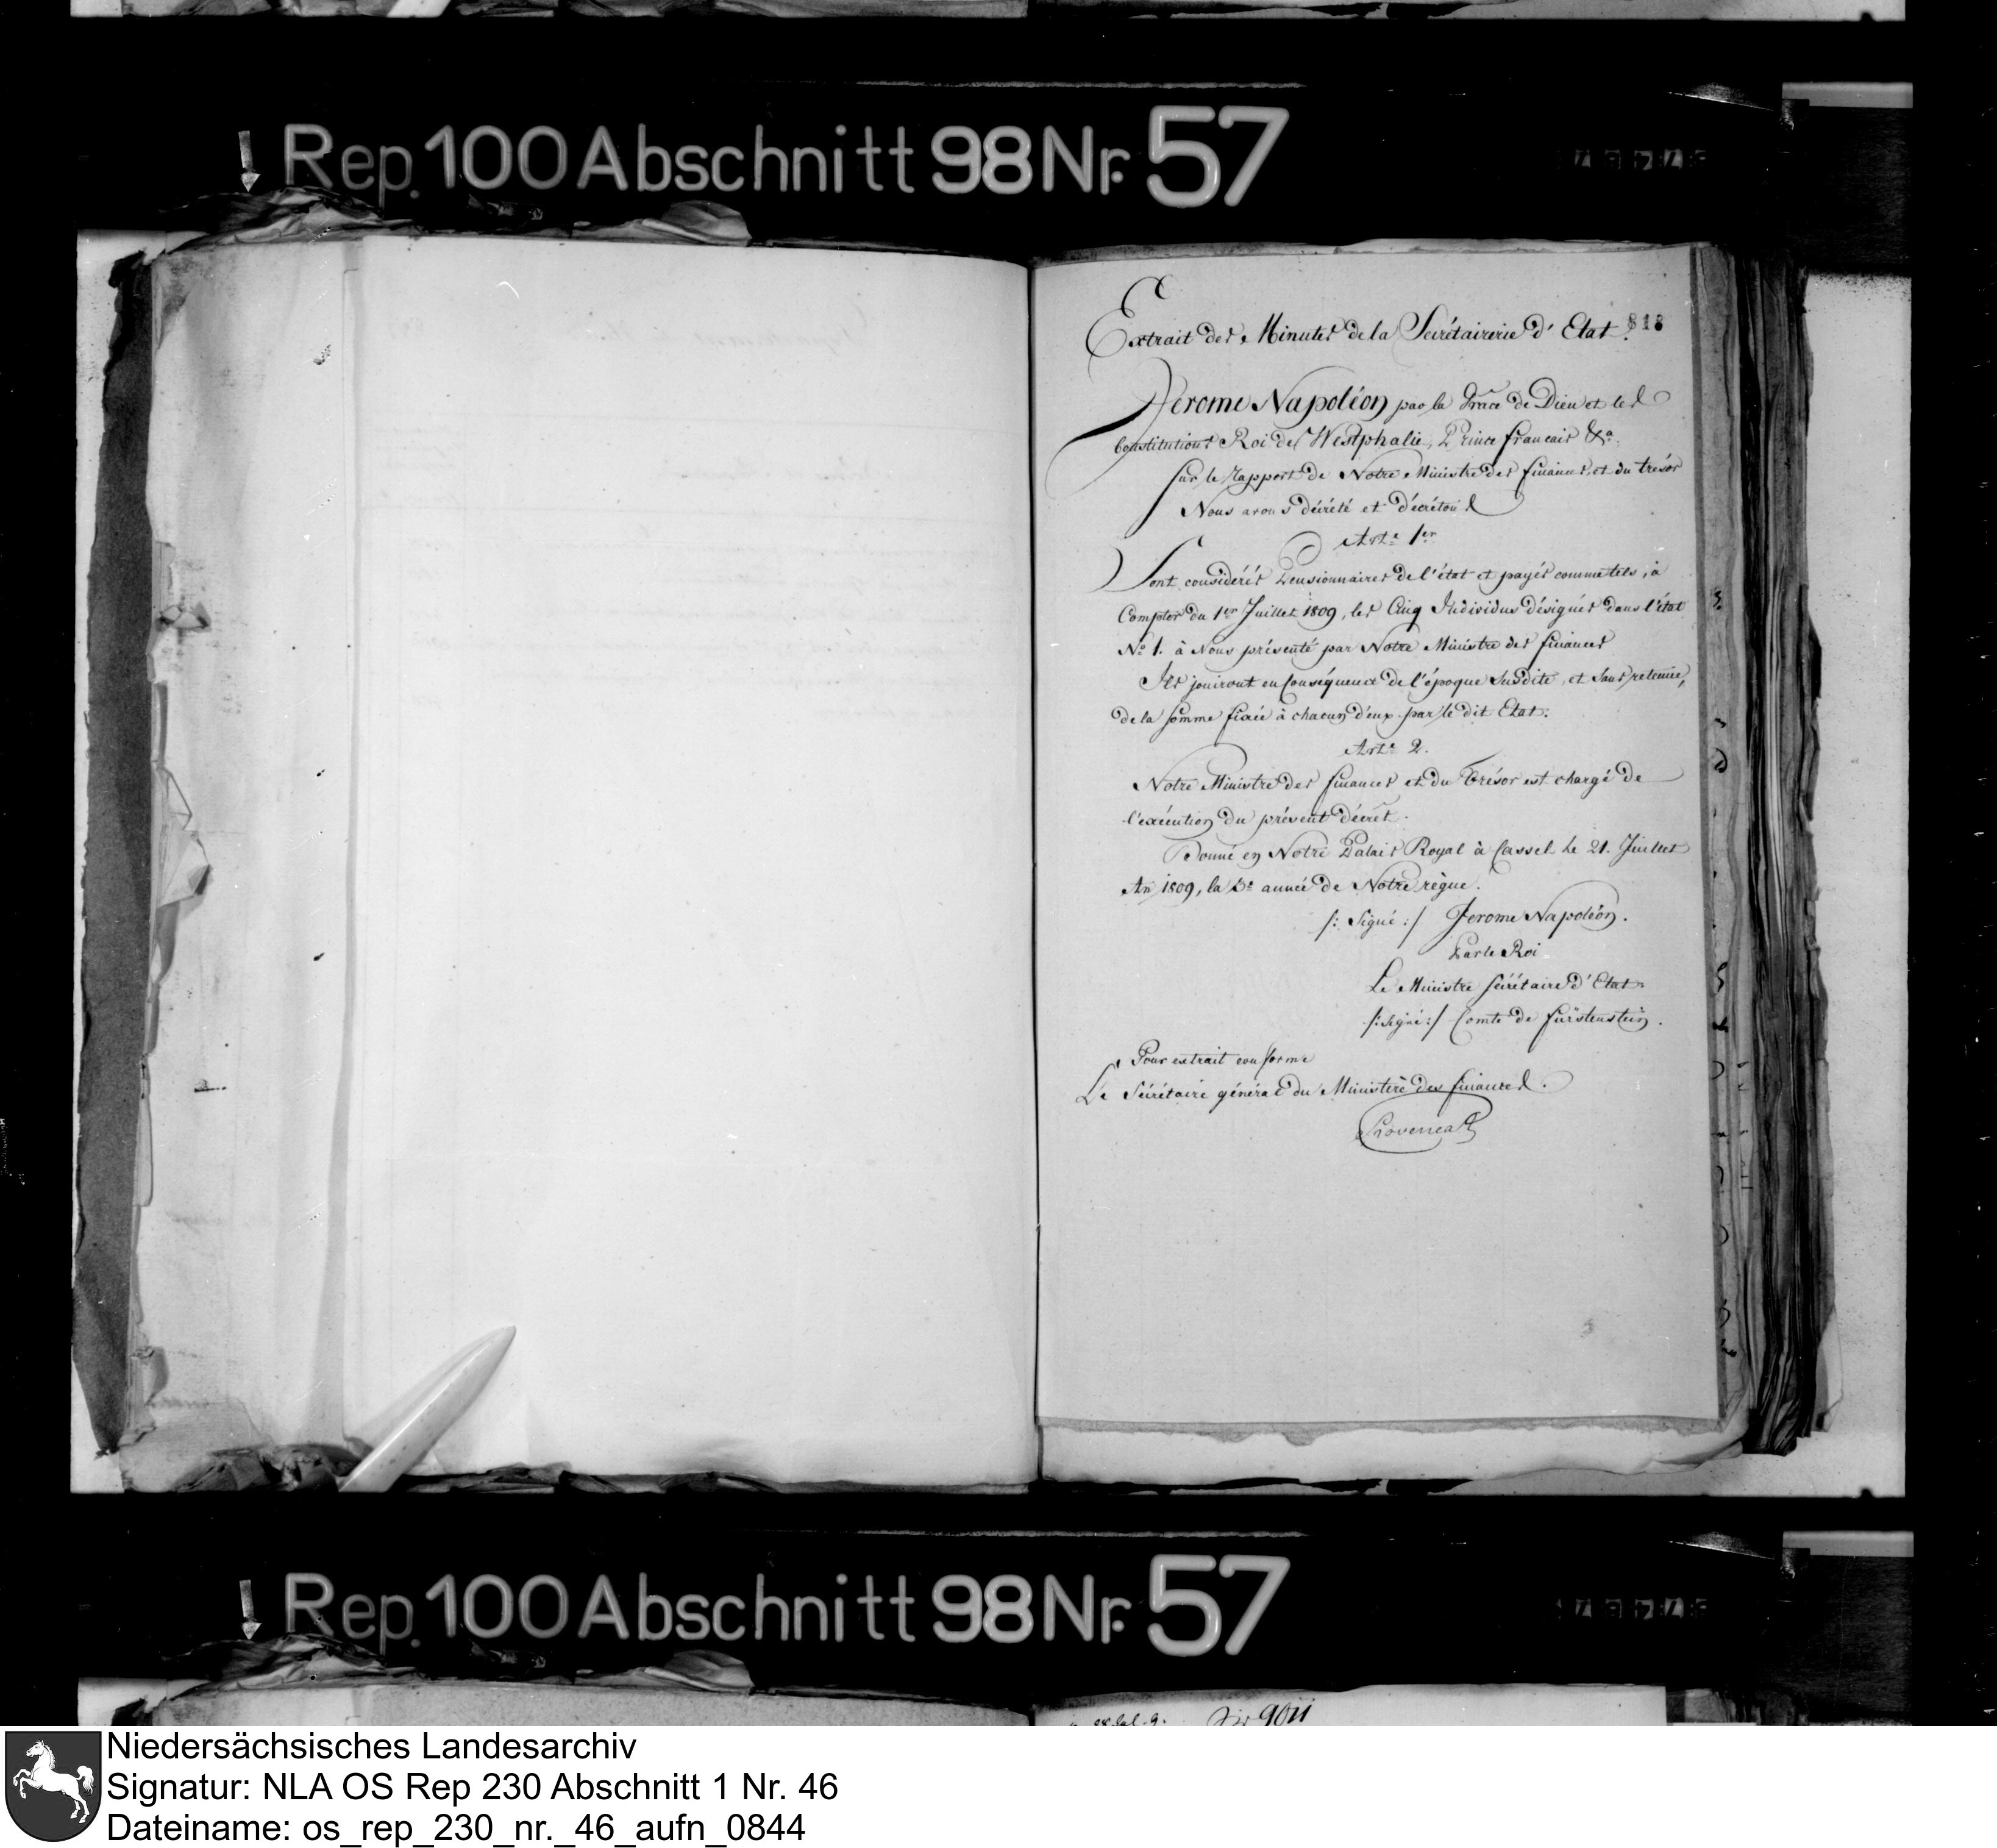 Rep. 100 Abschnitt 98 Nr. 57
818
Extrait des Minutes de la Secrétairerie d'Etat.
Jerome Napoléon par la Grace de Dieu et les
Constitutions Roi de Westphalie, Prince francais &a.
Sur le rapport de Notre Ministre des finances, et du trésor
Nous avons décrété et décrétons
Art. 1er
Sont considérés Pensionnaires de l'état et payés comme tels, à
Compter du 1er Juillet 1809, les Cinq Individus désignés dans l'état
No 1. à Nous présenté par Notre Ministre des finances
Ils jouiront en Conséquence de l'époque susdite, et sans retenue,
de la somme fixée à chacun d'eux par le dit Etat.
Art. 2.
Notre Ministre des finances et du Trésor est chargé de
l'exécution du présent décret.
Donné en Notre Palais Royal à Cassel le 21. Juillet
An 1809, la 3e année de Notre règne.
/: Signé :/ Jerome Napoléon.
Par le Roi
Le Ministre Secrétaire d'Etat
/: signé :/ Comte de Fürstenstein.
Pour extrait conforme
Le Secrétaire général du Ministère des finances.
Provencal
Rep. 100 Abschnitt 98 Nr. 57
9011
Niedersächsisches Landesarchiv
Signatur: NLA OS Rep 230 Abschnitt 1 Nr. 46
Dateiname: os_rep_230_nr._46_aufn_0844